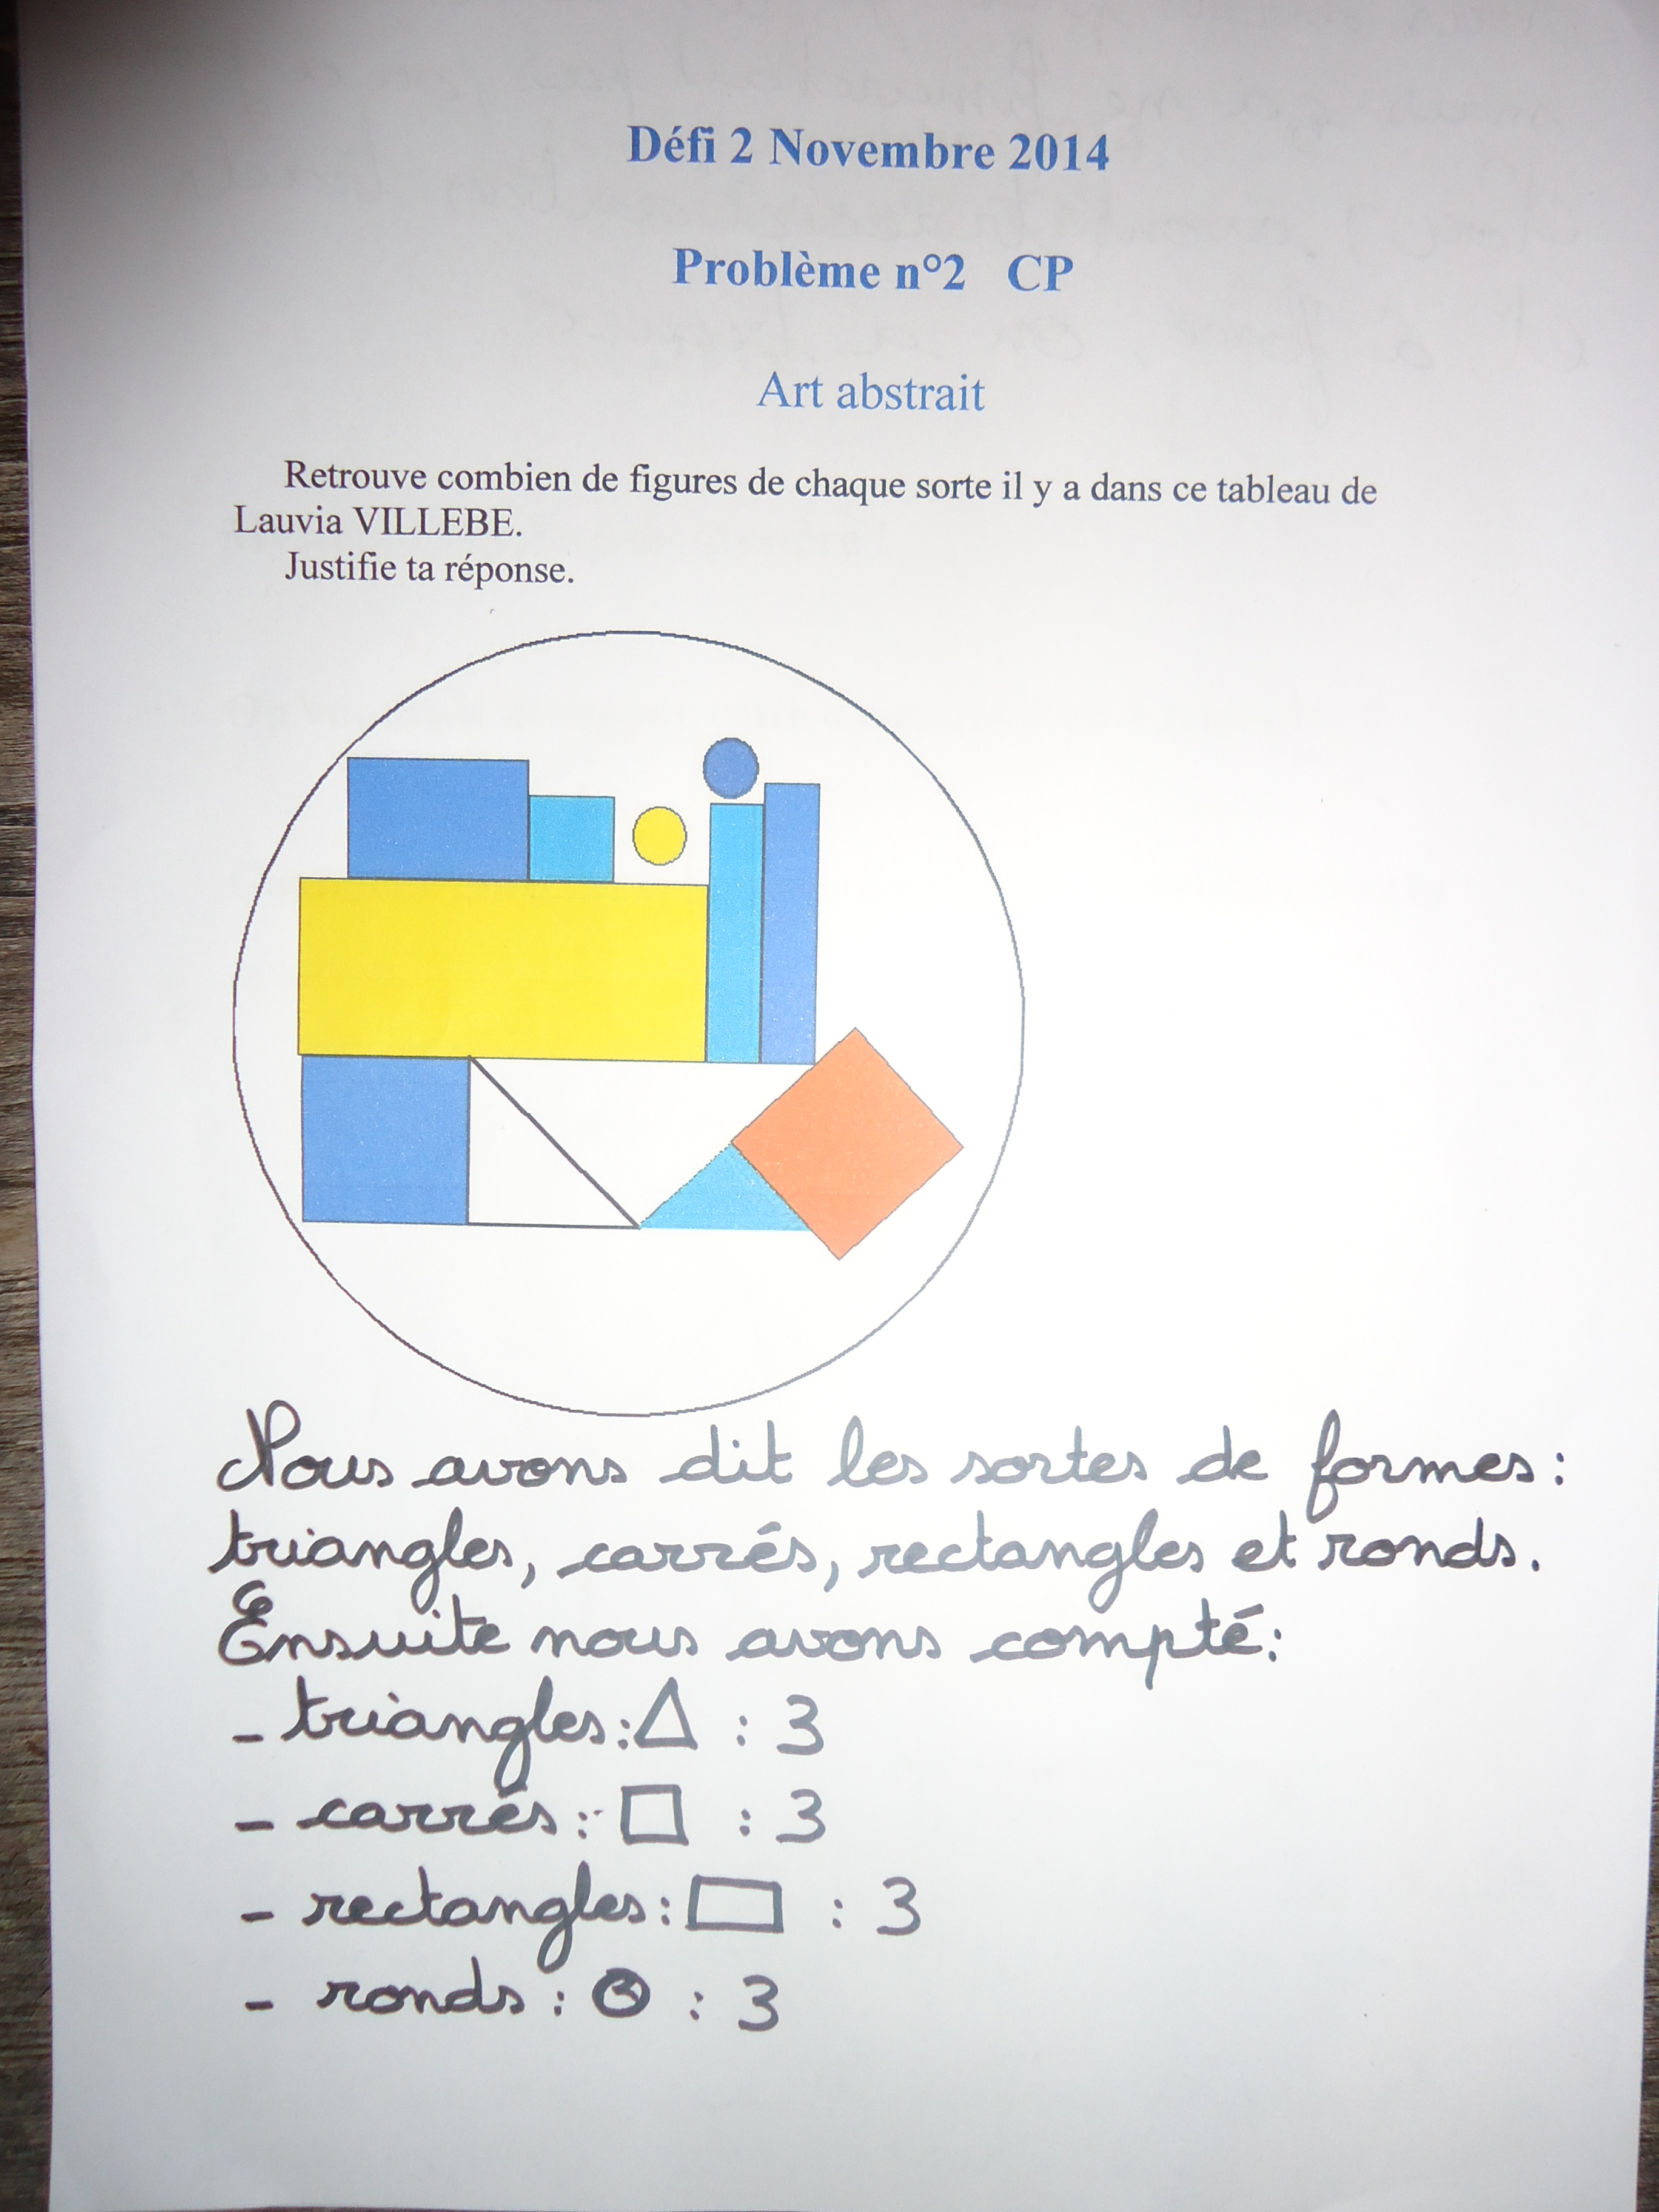 Défi 2 Novembre 2014
Problème n°2 CP
Art abstrait
Retrouve combien de figures de chaque sorte il y a dans ce tableau de
Lauvia VILLEBE.
Justifie ta réponse.
Nous avons dit les sortes de formes :
triangles, carrés, rectangles et ronds.
Ensuite nous avons compté :
- triangles : △ : 3
- carrés : □ : 3
- rectangles : ▭ : 3
- ronds : ○ : 3